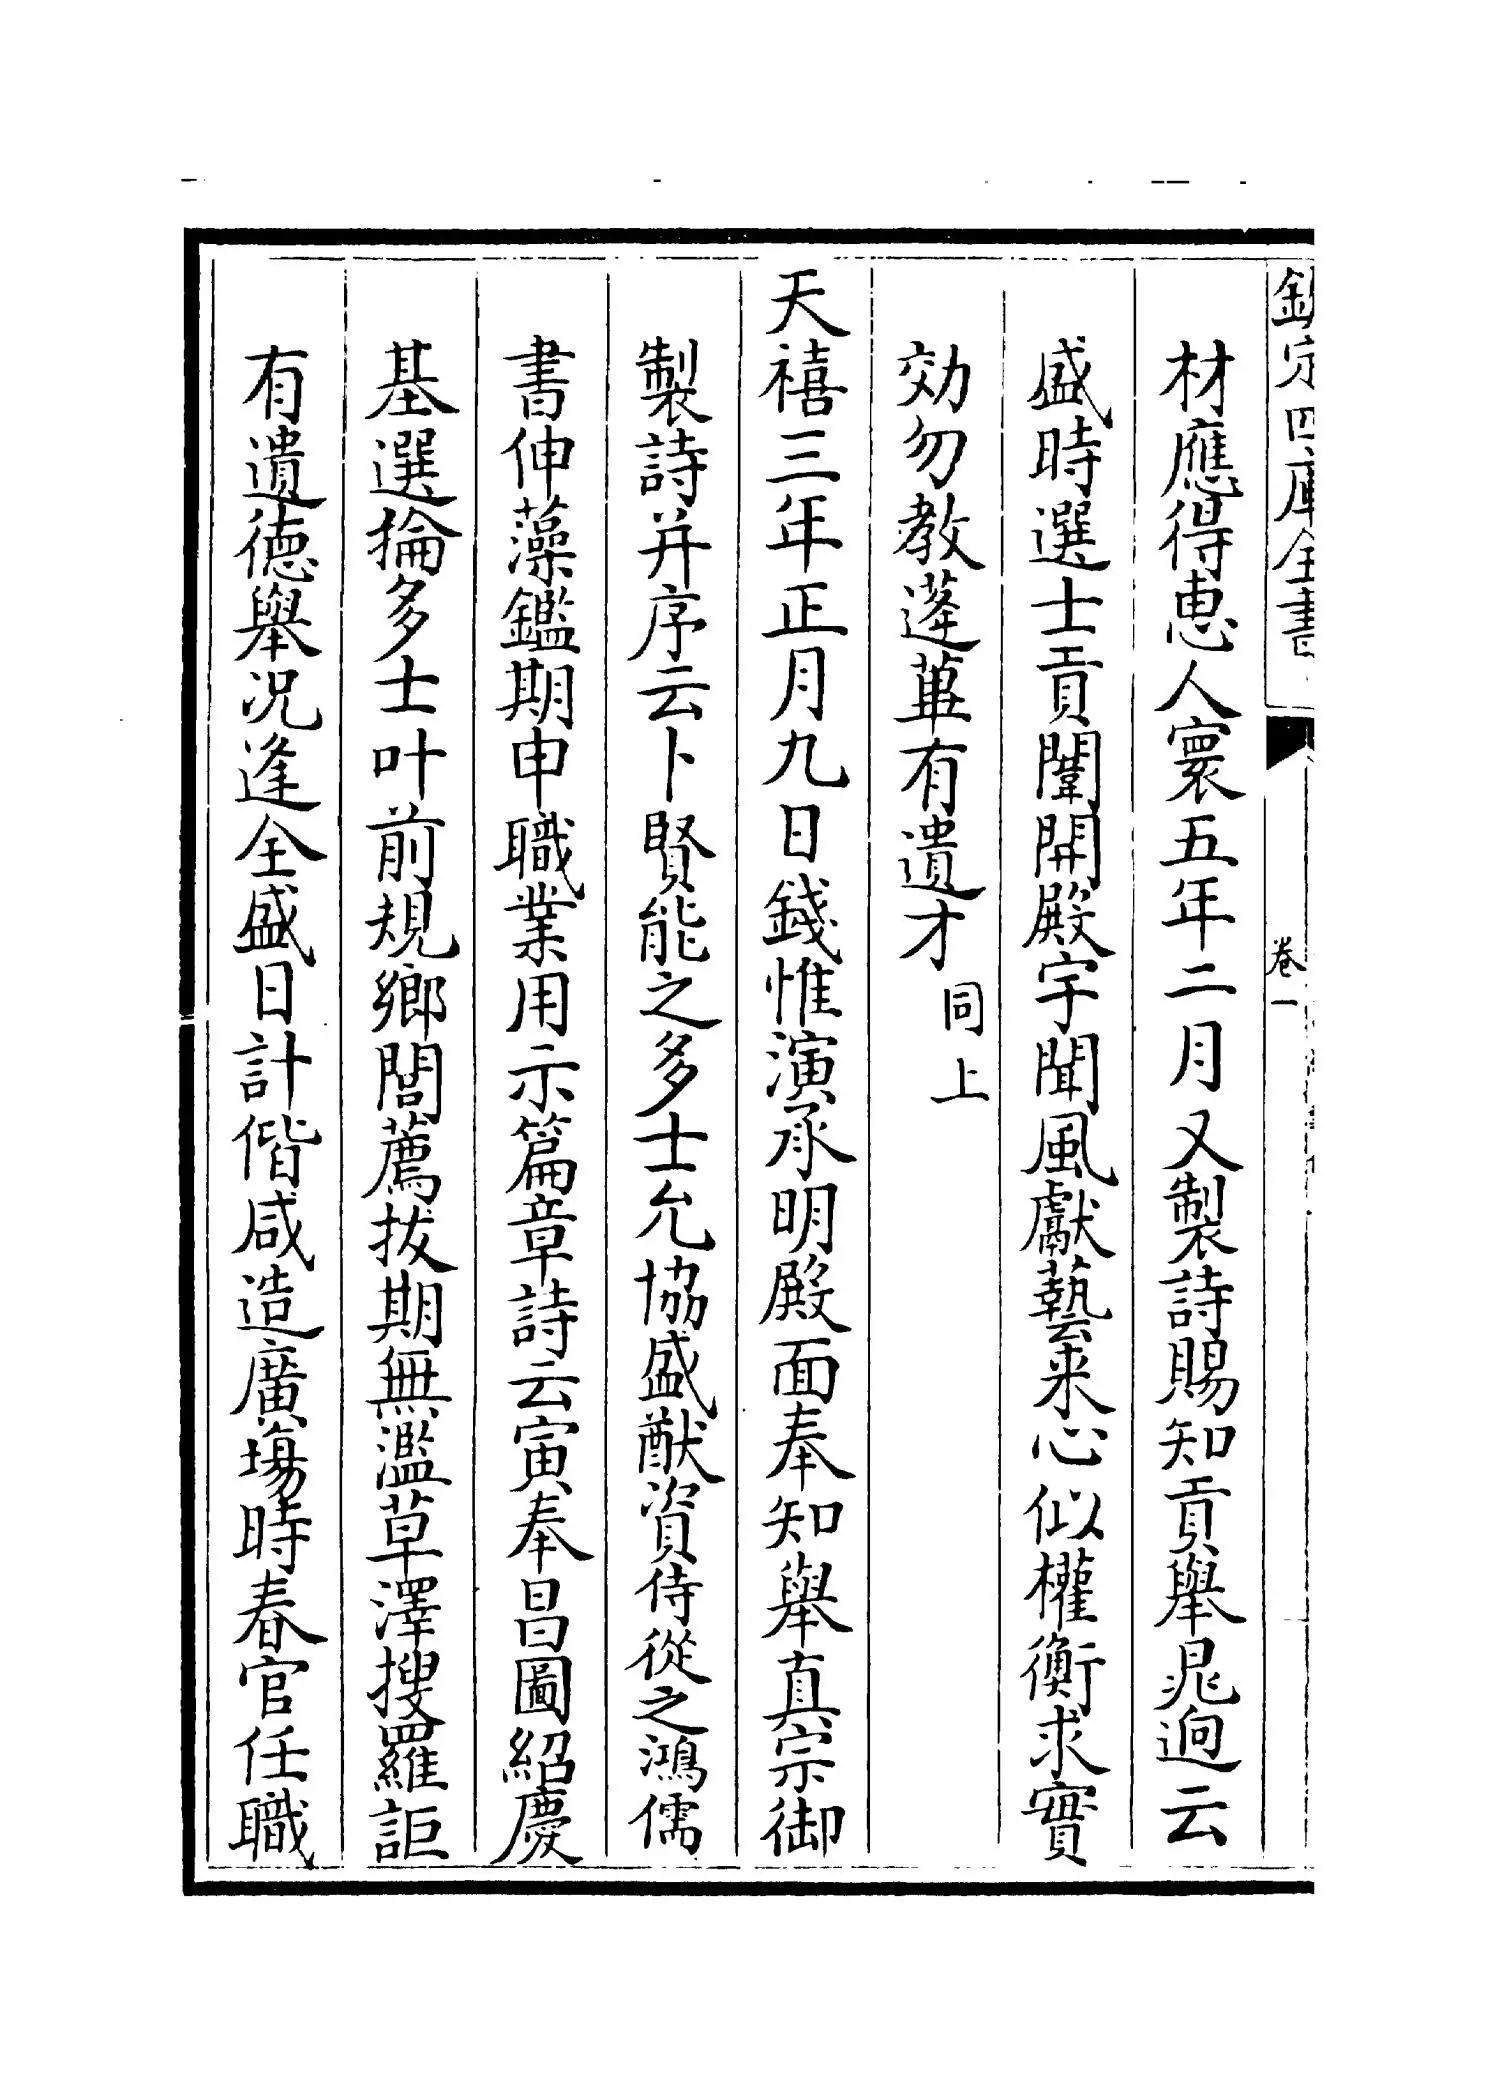 欽定四庫全書
卷一
材應得惠人寰五年二月又製詩賜知貢舉晁迥云
盛時選士貢闈開殿宇聞風獻藝來心似權衡求實
効勿教蓬蓽有遺才同上
天禧三年正月九日錢惟演承明殿面奉知舉真宗御
製詩并序云卜賢能之多士允協盛猷資侍從之鴻儒
書伸藻鑑期申職業用示篇章詩云寅奉昌圖紹慶
基選掄多士叶前規鄉閭薦拔期無濫草澤搜羅詎
有遺德舉況逢全盛日計偕咸造廣塲時春官任職